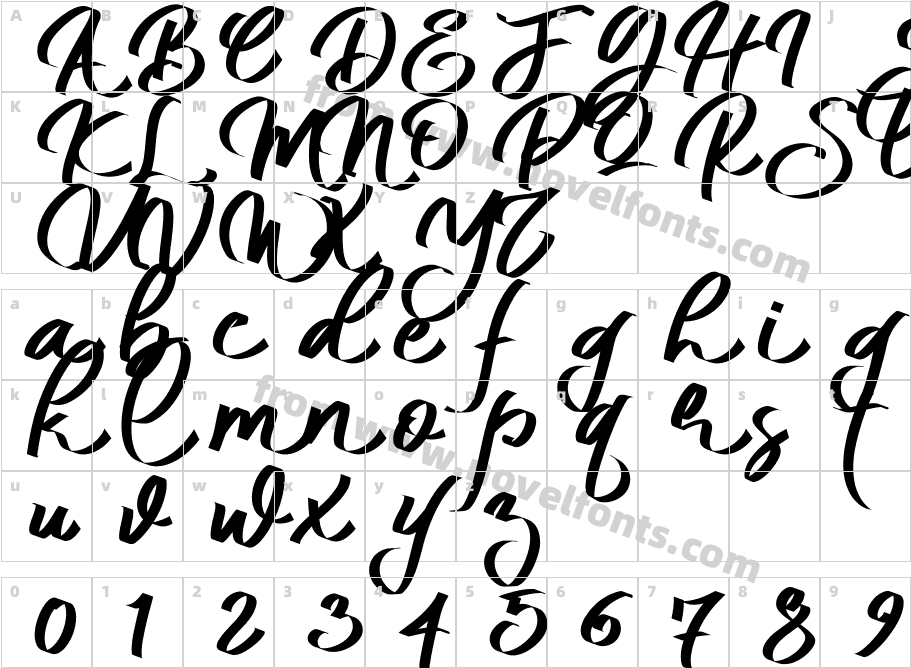 A B C D E F G H I J
A B C D E F G H I
K L M N O P Q R S T
K L M N O P Q R S T
U V W X Y Z
U V W X Y Z
from www.novelfonts.com
a b c d e f g h i g
a b c d e f g h i g
k l m n o p q r s t
k l m n o p q r s t
u v w x y z
u v w x y z
from www.novelfonts.com
0 1 2 3 4 5 6 7 8 9
0 1 2 3 4 5 6 7 8 9